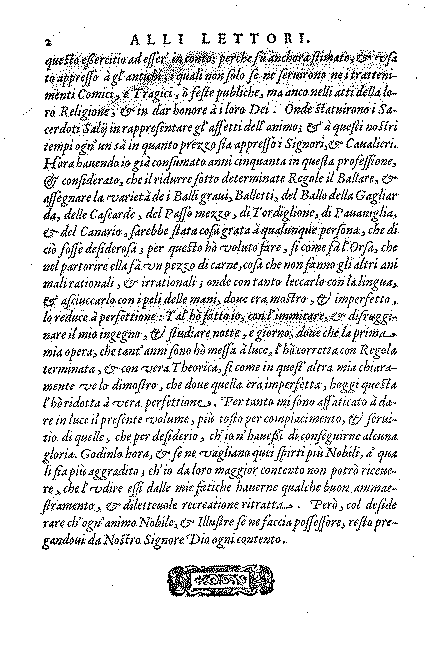 2 ALLI LETTORI.
questo essercitio ad esser in conto; perche fù anchora stimato, & usa
to appresso à gl'antichi, i quali non solo se ne seruirono ne i tratteni-
menti Comici, è Tragici, ò feste publiche, ma anco nelli atti della lo-
ro Religione, & in dar honore à i loro Dei. Onde statuirono i Sa-
cerdoti Salij in rappresentare gl'affetti dell'animo; & à questi nostri
tempi ogn'un sà in quanto prezzo sia appresso i Signori, & Caualieri.
Hora hauendo io già consumato anni cinquanta in questa professione,
& considerato, che il ridurre sotto determinate Regole il Ballare, &
assegnare la varietà de i Balli graui, Balletti, del Ballo della Gagliar
da, delle Cascarde, del Passo mezzo, di Tordiglione, di Pauaniglia,
& del Canario, sarebbe stata cosa grata à qualunque persona, che di
ciò fosse desiderosa; per questo hò voluto fare, sì come fà l'Orsa, che
nel partorire ella fà vn pezzo di carne, cosa che non fanno gli altri ani
mali rationali, & irrationali; onde con tanto leccarlo con la lingua,
& asciuccarlo con i peli delle mani, doue era mostro, & imperfetto,
lo reduce à perfettione: Tal hò fatto io, con l'immitare, & distruggi-
nare il mio ingegno, & studiare notte, e giorno; doue che la prima
mia opera, che tant'anni sono hò messa à luce, l'hò corretta con Regola
terminata, & con vera Theorica, sì come in quest'altra mia chiara-
mente ve lo dimostro, che doue quella era imperfetta, hoggi questa
l'hò ridotta à vera perfettione. Per tanto mi sono affaticato à da-
re in luce il presente volume, più tosto per compiacimento, & serui-
tio di quelle, che per desiderio, ch'io n'hauessi di conseguirne alcuna
gloria. Godinlo hora, & se ne vagliano quei spirti più Nobili, à qua
li sia più aggradito; ch'io da loro maggior contento non potrò riceue-
re, che l'vdire essi dalle mie fatiche hauerne qualche buon ammae-
stramento, & diletteuole recreatione ritratta. Però, col deside
rare ch'ogn'animo Nobile, & Illustre se ne faccia possessore, resto pre-
gandoui da Nostro Signore Dio ogni contento.